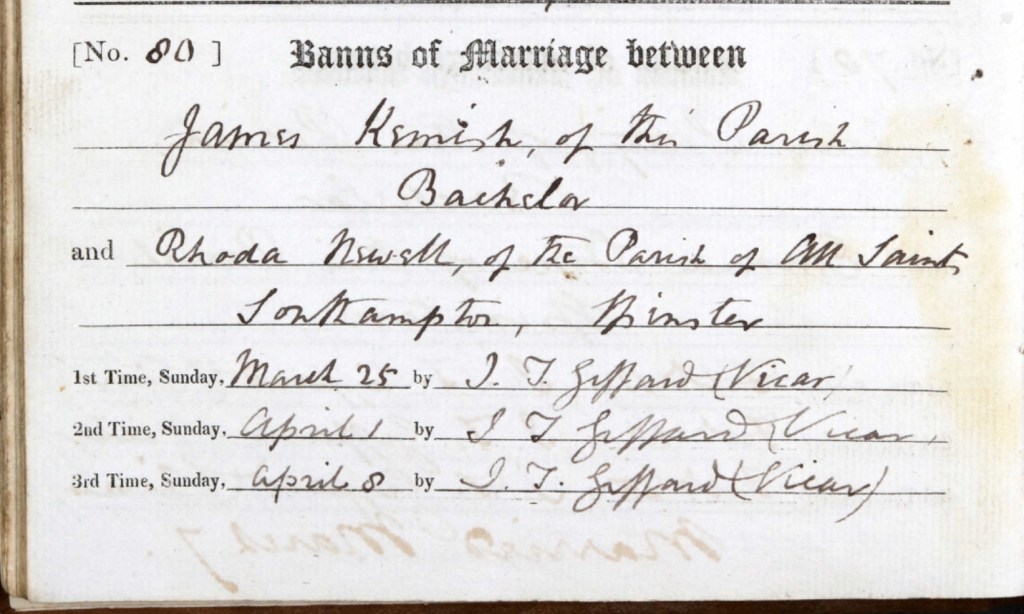 [No. 80 ] Banns of Marriage between
James Kemish, of this Parish
Bachelor
and Rhoda Newell, of the Parish of All Saints
Southampton, Spinster
1st Time, Sunday, March 25 by J. T. Giffard (Vicar)
2nd Time, Sunday, April 1 by J. T. Giffard (Vicar)
3rd Time, Sunday, April 8 by J. T. Giffard (Vicar)